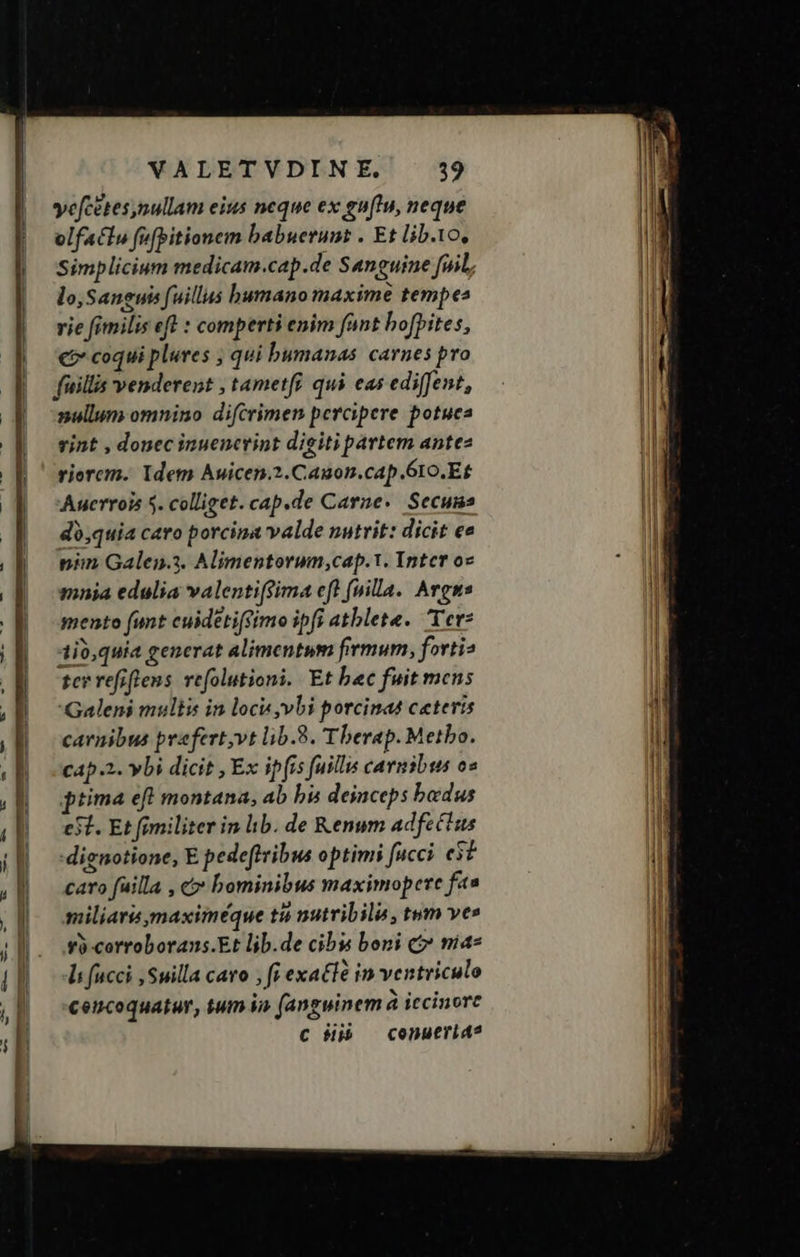 VALETVDINE. 39
vescētes, nullam eius neque ex gustu, neque
olfactu suspitionem habuerunt . Et lib.10,
Simplicium medicam.cap.de Sanguine suil,
lo, Sanguis suillus humano maximè tempe=
rie similis est : comperti enim sunt hospites,
& coqui plures , qui humanas carnes pro
suillis venderent , tametsi qui eas edissent,
nullum omnino discrimen percipere potue=
rint , donec inuenerint digiti partem ante=
riorem. Idem Auicen.2.Canon.cap.610.Et
Auerrois 5. colliget. cap.de Carne. Secun=
dò,quia caro porcina valde nutrit: dicit e=
nim Galen.3. Alimentorum,cap.1. Inter o=
mnia edulia valentissima est suilla. Argu=
mento sunt euidētissimo ipsi athletæ. Ter=
tiò,quia generat alimentum firmum, forti=
ter resistens resolutioni. Et hæc fuit mens
Galeni multis in locis,vbi porcinas cæteris
carnibus præfert,vt lib.8. Therap. Metho.
cap.2. vbi dicit , Ex ipsis suillis carnibus o=
ptima est montana, ab his deinceps hædus
est. Et similiter in lib. de Renum adfectus
dignotione, E pedestribus optimi succi est
caro suilla , & hominibus maximopere fa=
miliaris,maximéque tū nutribilis, tum ve=
rò corroborans.Et lib.de cibis boni & ma=
li succi ,Suilla caro , si exactè in ventriculo
concoquatur, tum in sanguinem à iecinore
c iiij conuerta=